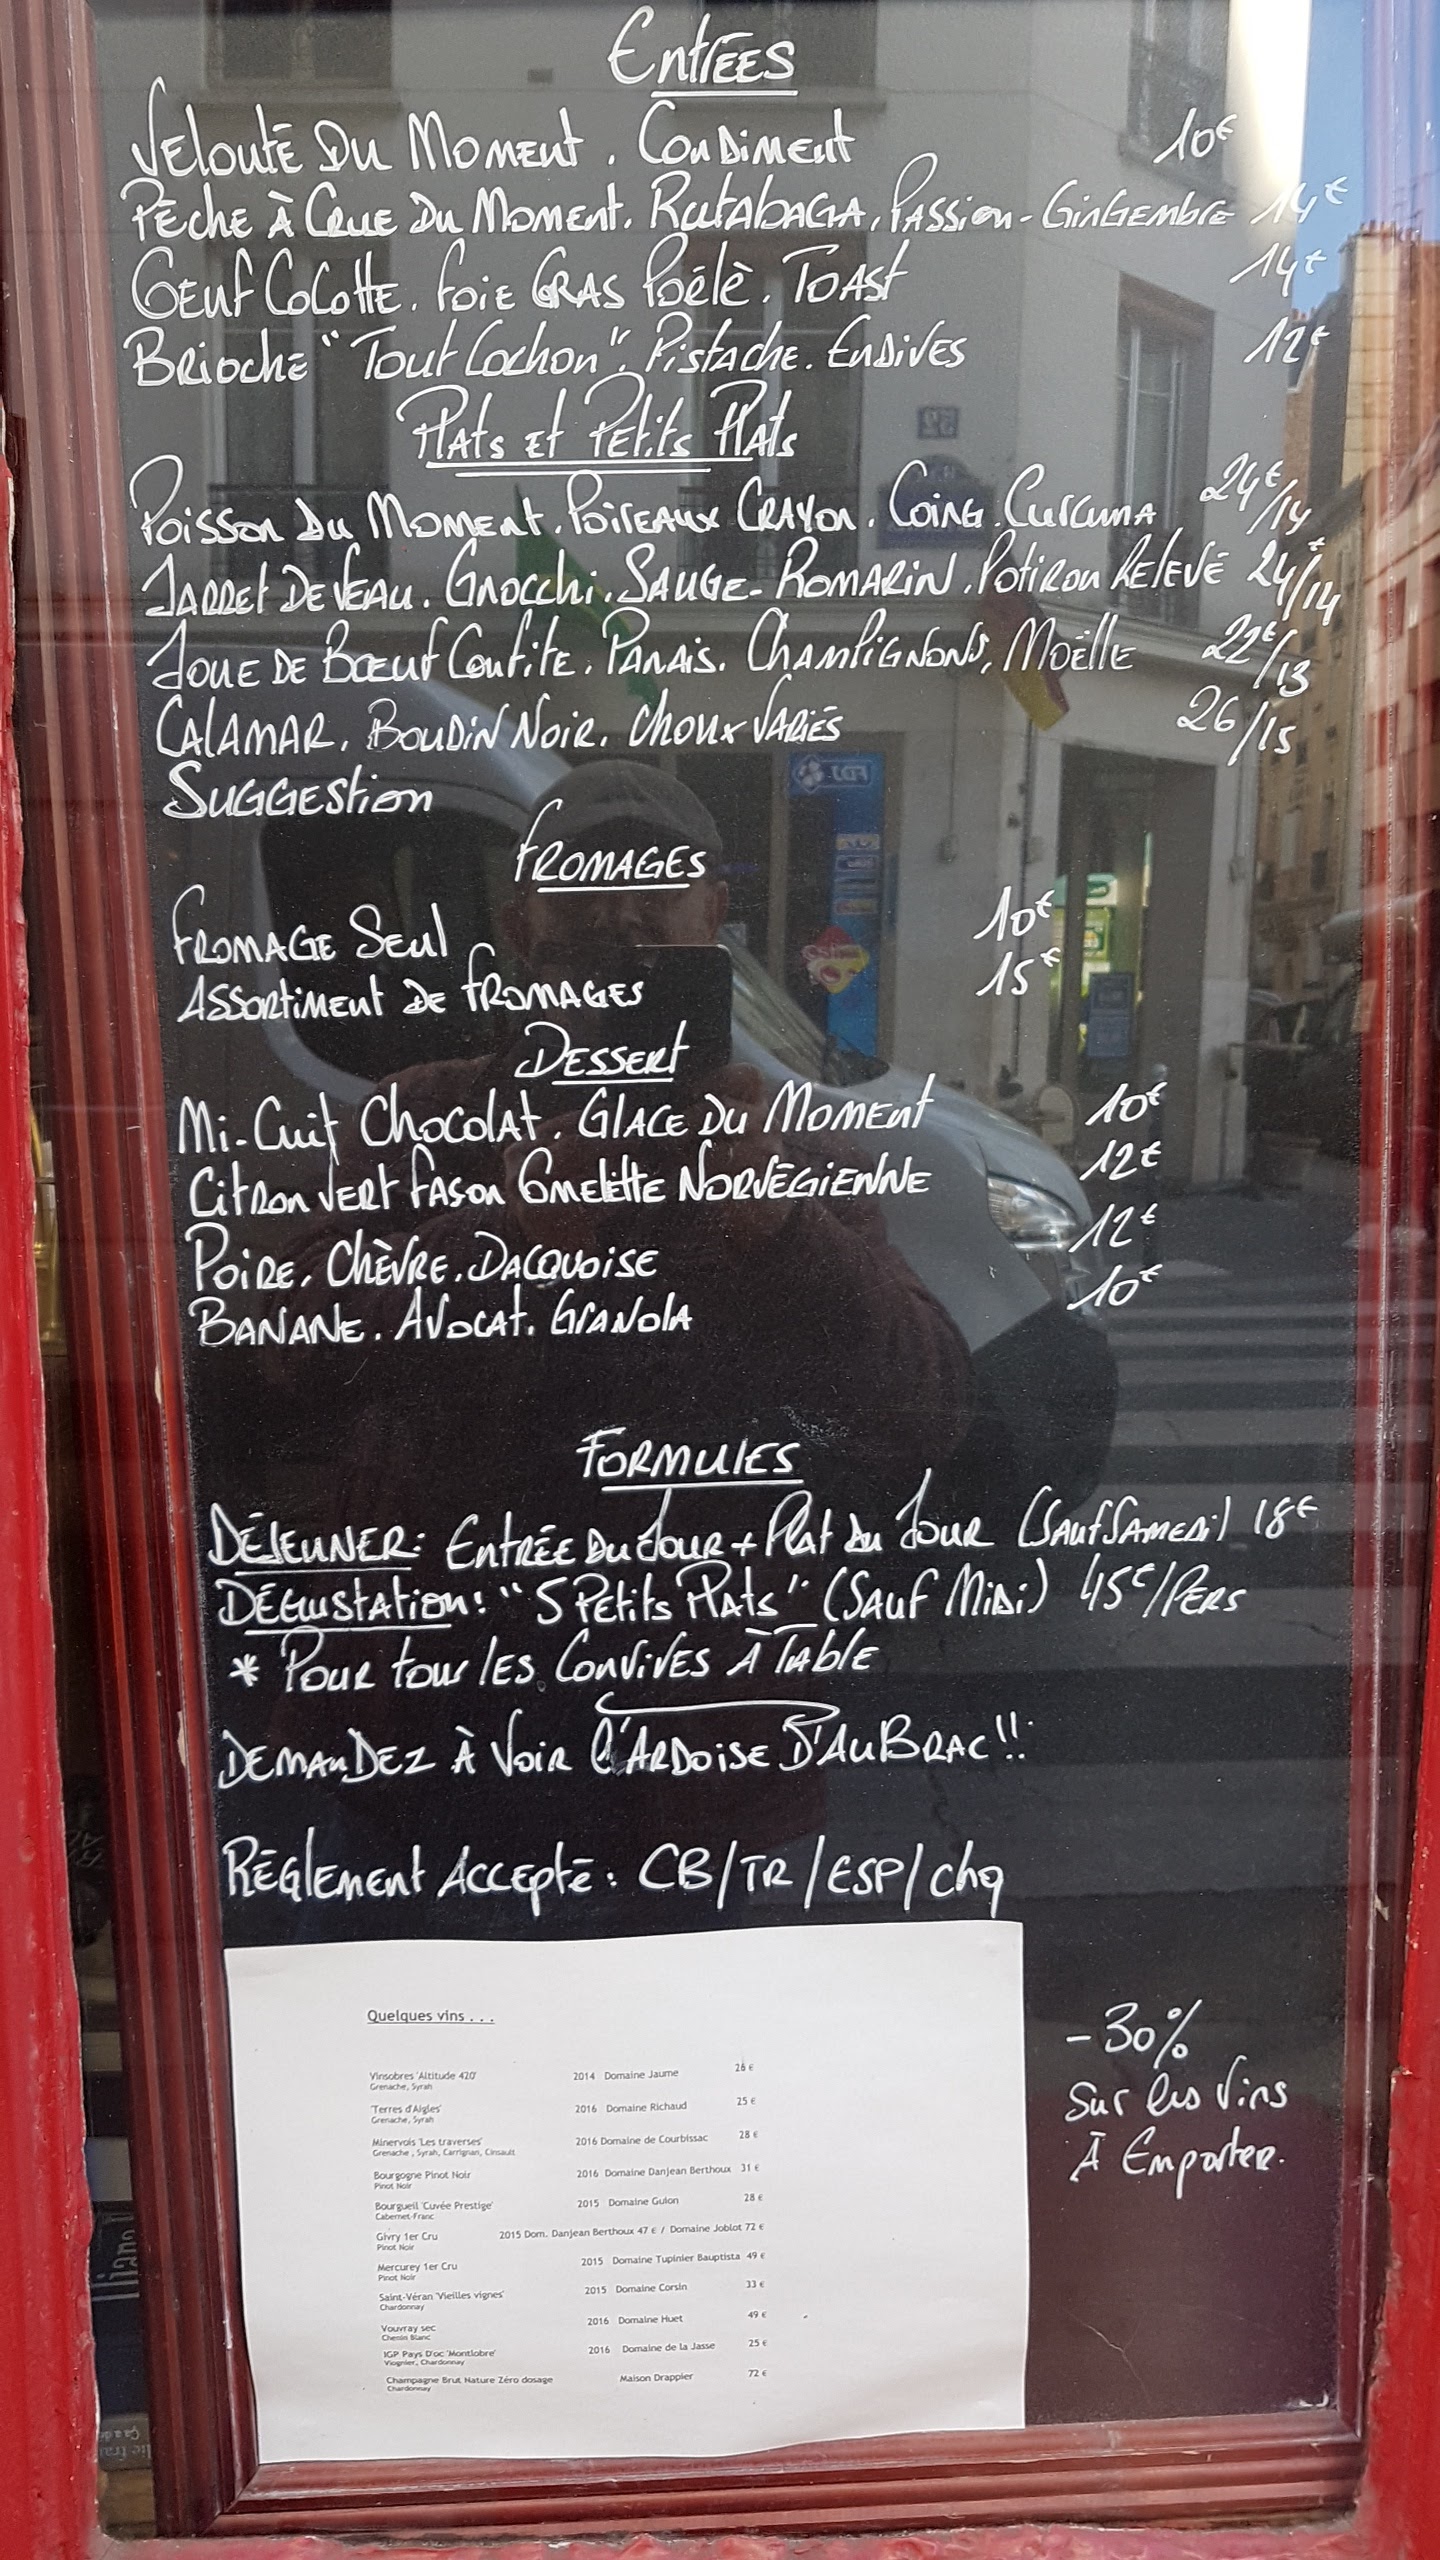 Entrées
Velouté Du Moment. Condiment 10€
Pêche À Crue Du Moment. Rutabaga. Passion-Gingembre 14€
Oeuf Cocotte. Foie Gras Poêlè. Toast 14€
Brioche "Tout Cochon". Pistache. Endives 12€
Plats et Petits Plats
Poisson Du Moment. Poireaux Crayon. Coing. Curcuma 24€/14
Jarret De Veau. Gnocchi. Sauge-Romarin. Potiron Relevé 24€/14
Joue de Bœuf Confite. Panais. Champignons, Moëlle 22€/13
Calamar. Boudin Noir. Choux Variés 26/15
Suggestion
Fromages
Fromage Seul 10€
Assortiment de Fromages 15€
Dessert
Mi-Cuit Chocolat. Glace Du Moment 10€
Citron Vert Fason Omelette Norvégienne 12€
Poire. Chèvre. Dacquoise 12€
Banane. Avocat. Granola 10€
Formules
Déjeuner: Entrée Du Jour + Plat du Jour (Sauf Samedi) 18€
Dégustation: "5 Petits Plats" (Sauf Midi) 45€/Pers
* Pour tous les Convives À Table
Demandez à Voir l'Ardoise D'Aubrac!!
Réglement Accepté: CB/TR/ESP/chq
-30%
Sur les Vins
À Emporter.
Quelques vins . . .
Vinsobres 'Altitude 420' 2014 Domaine Jaume 26 €
Grenache, Syrah
'Terres d'Aigles' 2016 Domaine Richaud 25 €
Grenache, Syrah
Minervois 'Les traverses' 2016 Domaine de Courbissac 28 €
Grenache , Syrah, Carrignan, Cinsault
Bourgogne Pinot Noir 2016 Domaine Danjean Berthoux 31 €
Pinot Noir
Bourgueil 'Cuvée Prestige' 2015 Domaine Guion 28 €
Cabernet-Franc
Givry 1er Cru 2015 Dom. Danjean Berthoux 47 € / Domaine Joblot 72 €
Pinot Noir
Mercurey 1er Cru 2015 Domaine Tupinier Bauptista 49 €
Pinot Noir
Saint-Véran 'Vieilles vignes' 2015 Domaine Corsin 33 €
Chardonnay
Vouvray sec 2016 Domaine Huet 49 €
Chenin Blanc
IGP Pays D'oc 'Montlobre' 2016 Domaine de la Jasse 25 €
Viognier, Chardonnay
Champagne Brut Nature Zéro dosage Maison Drappier 72 €
Chardonnay
52
FDJ